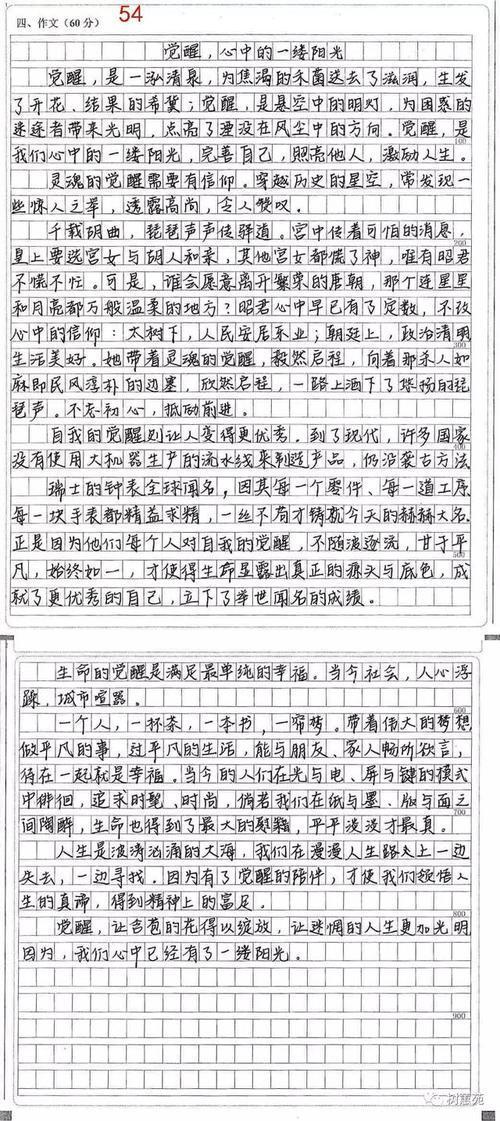 54
四、作文(60分)
觉醒，心中的一缕阳光
觉醒，是一泓清泉，为焦渴的禾苗送去了滋润，生发
了开花、结果的希冀；觉醒，是悬空中的明灯，为困惑的
迷途者带来光明，点亮了湮没在风尘中的方向。觉醒，是
我们心中的一缕阳光，完善自己，照亮他人，激励人生。
100
灵魂的觉醒需要有信仰。穿越历史的星空，常发现一
些惊人之举，透露高尚，令人赞叹。
千载胡曲，琵琶声声传驿道。宫中传着可怕的消息，
200
皇上要选宫女与胡人和亲，其他宫女都慌了神，唯有昭君
不慌不忙。可是，谁会愿意离开繁荣的唐朝，那个连星星
和月亮都万般温柔的地方？昭君心中早已有了定数，不改
心中的信仰：大树下，人民安居乐业；朝廷上，政治清明
300
生活美好。她带着灵魂的觉醒，毅然启程，向着那杀人如
麻即民风淳朴的边塞，欣然启程，一路上洒下了悠扬的琵
琶声。不忘初心，砥励前进。
自我的觉醒则让人变得更优秀。到了现代，许多国家
400
没有使用大机器生产的流水线来制造产品，仍沿袭古方法
瑞士的钟表全球闻名，因其每一个零件、每一道工序
每一块手表都精益求精，一丝不苟才铸就今天的赫赫大名
正是因为他们每个人对自我的觉醒，不随波逐流，甘于平
500
凡，始终如一，才使得生命显露出真正的源头与底色，成
就了更优秀的自己，立下了举世闻名的成绩。
生命的觉醒是满足最单纯的幸福。当今社会，人心浮
躁，城市喧嚣。
600
一个人，一杯茶，一本书，一帘梦。带着伟大的梦想
做平凡的事，过平凡的生活，能与朋友、家人畅所欲言，
待在一起就是幸福。当今的人们在光与电、屏与键的模式
中徘徊，追求时髦、时尚，倘若我们在纸与墨、版与面之
700
间陶醉，生命也得到了最大的慰藉，平平淡淡才最真。
人生是波涛汹涌的大海，我们在漫漫人生路之上一边
失去，一边寻找。因为有了觉醒的陪伴，才使我们领悟人
生的真谛，得到精神上的富足。
800
觉醒，让含苞的花得以绽放，让迷惘的人生更加光明
因为，我们心中已经有了一缕阳光。
900
树蕙苑